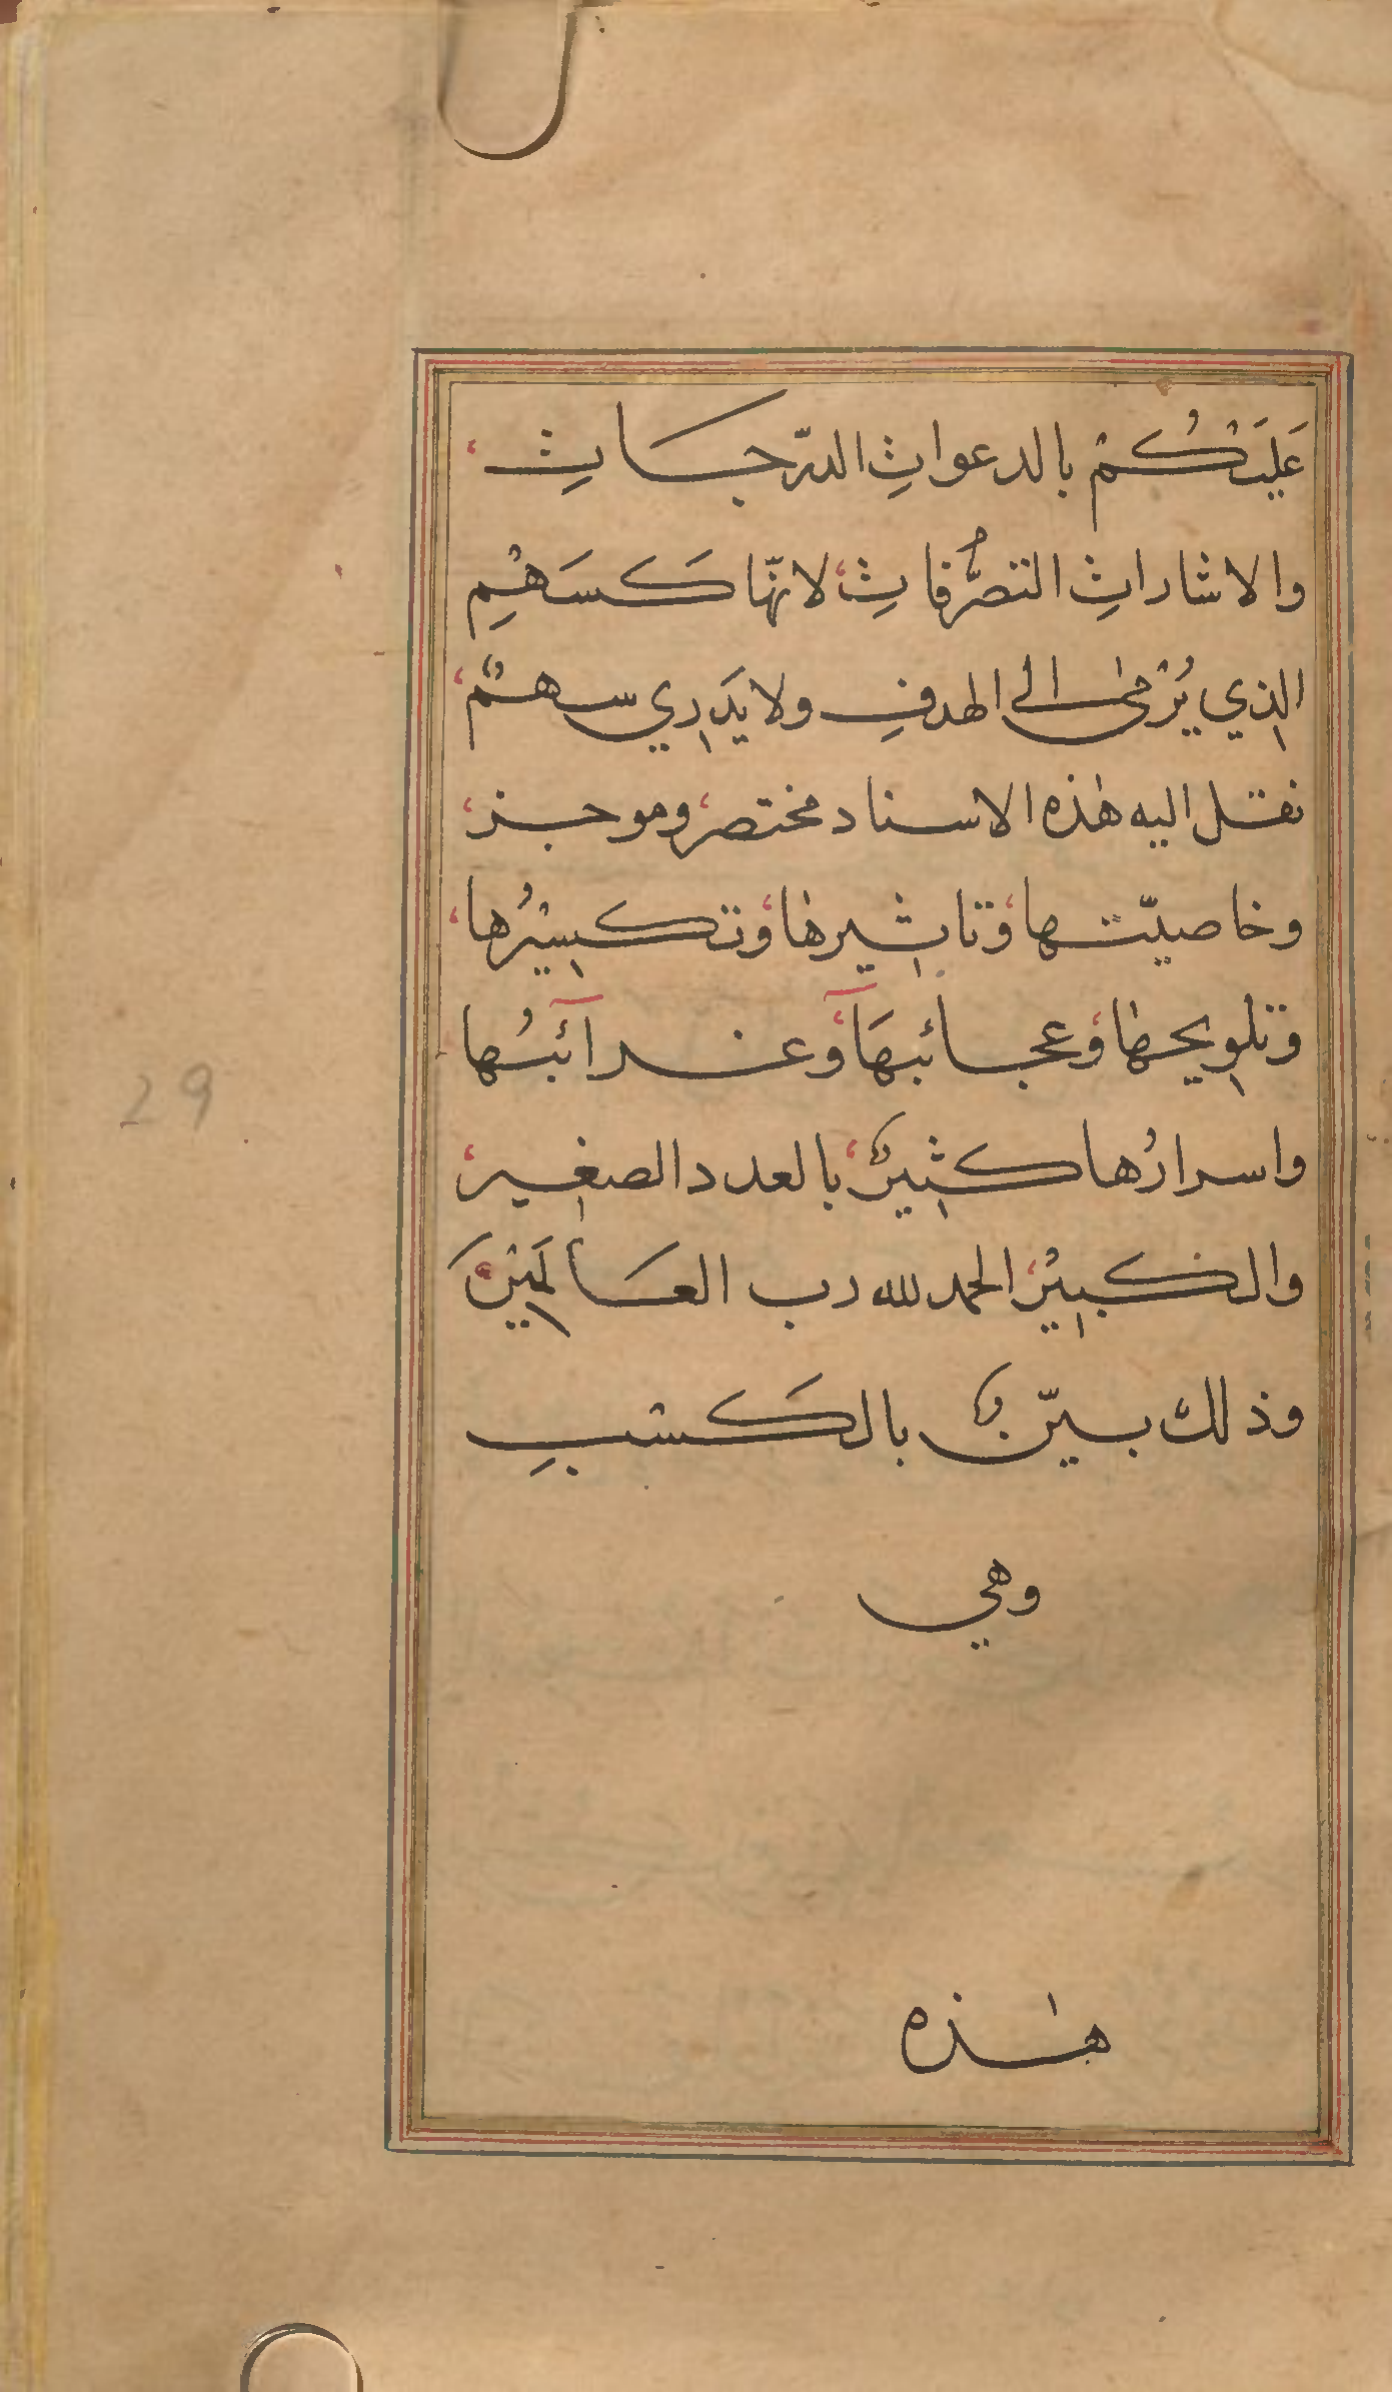 عَلَيْكُمْ بالدعواتِ الدّرجاتِ،
والاشاراتِ التصرُّفاتِ، لانّها كَسَهْمِ
الذي يُرْمىٰ الى الهدفِ ولا يَدري سهمٌ،
نقل اليه هٰذه الاسناد مختصر، وموجز،
وخاصيّتها، وتاثيرها، وتكسيْرُها،
وتلويحها، وعجائبهَا، وغرآئبُها
واسرارُها كثيرٌ، بالعدد الصغير،
والكبيْر، الحمد لله رب العَالَمِيْنَ
وذلك بيّنٌ بالكَتبِ
وهي
هٰذه
29